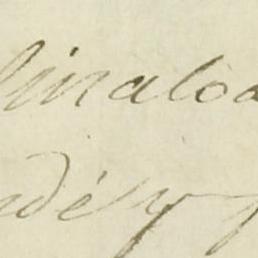 Sinaloa
adé y